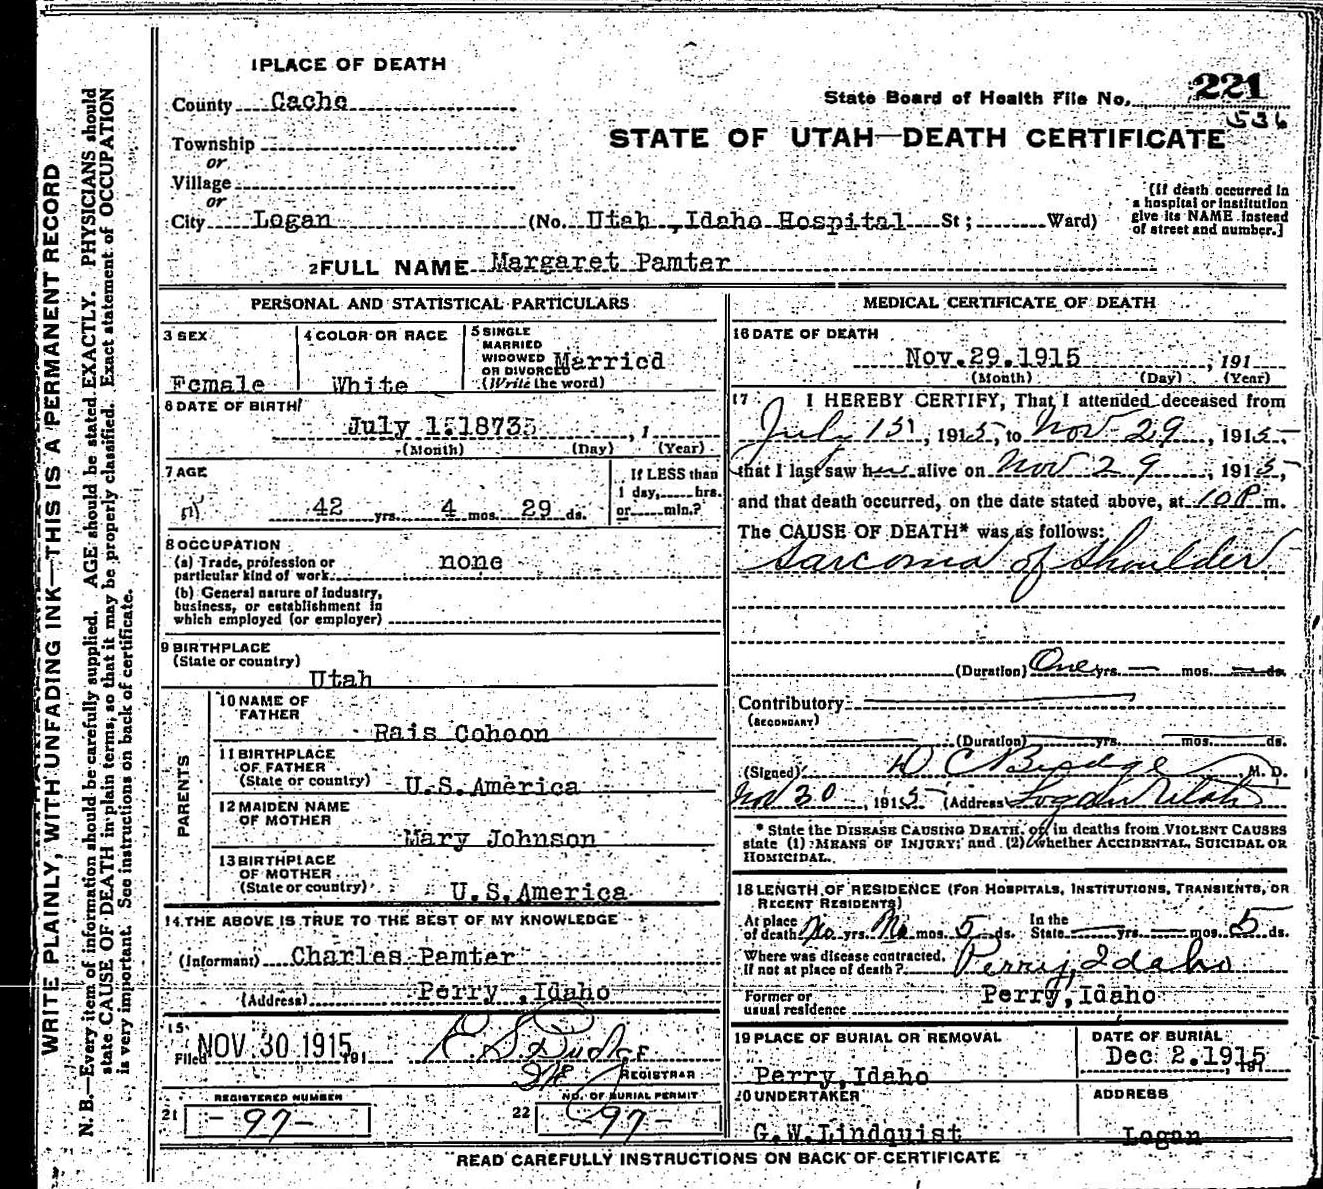 1 PLACE OF DEATH
County Cache
State Board of Health File No. 221
536
STATE OF UTAH—DEATH CERTIFICATE
Township
or
Village
or
City Logan (No. Utah, Idaho Hospital St; Ward)
[If death occurred in
a hospital or institution
give its NAME instead
of street and number.]
2 FULL NAME Margaret Pamter
PERSONAL AND STATISTICAL PARTICULARS
3 SEX
Female
4 COLOR OR RACE
White
5 SINGLE
MARRIED
WIDOWED
OR DIVORCED
(Write the word)
Married
6 DATE OF BIRTH
July 1. , 1
(Month) (Day) (Year)
7 AGE
42 yrs. 4 mos. 29 ds.
If LESS than
1 day, hrs.
or min.?
8 OCCUPATION
(a) Trade, profession or
particular kind of work none
(b) General nature of industry,
business, or establishment in
which employed (or employer)
9 BIRTHPLACE
(State or country)
Utah
PARENTS
10 NAME OF
FATHER
Rais Cohoon
11 BIRTHPLACE
OF FATHER
(State or country) U.S.America
12 MAIDEN NAME
OF MOTHER
Mary Johnson
13 BIRTHPLACE
OF MOTHER
(State or country) U.S.America
14 THE ABOVE IS TRUE TO THE BEST OF MY KNOWLEDGE
(Informant) Charles Pamter
(Address) Perry, Idaho
15
Filed NOV 30 1915 191
REGISTRAR
REGISTERED NUMBER
21 -97-
NO. OF BURIAL PERMIT
22 -97-
MEDICAL CERTIFICATE OF DEATH
16 DATE OF DEATH
Nov.29.1915 , 191
(Month) (Day) (Year)
17 I HEREBY CERTIFY, That I attended deceased from
July 1st, 1915, to Nov 29, 1915,
that I last saw her alive on Nov 29, 1915,
and that death occurred, on the date stated above, at 10 P m.
The CAUSE OF DEATH* was as follows:
Sarcoma of Shoulder
(Duration) One yrs. — mos. — ds.
Contributory
(SECONDARY)
(Duration) yrs. mos. ds.
(Signed) M. D.
Nov 30, 1915 (Address) Logan Utah
* State the DISEASE CAUSING DEATH, or, in deaths from VIOLENT CAUSES
state (1) MEANS OF INJURY; and (2) whether ACCIDENTAL, SUICIDAL OR
HOMICIDAL.
18 LENGTH OF RESIDENCE (FOR HOSPITALS, INSTITUTIONS, TRANSIENTS, OR
RECENT RESIDENTS)
At place
of death No yrs. No mos. 5 ds.
In the
State — yrs. — mos. 5 ds.
Where was disease contracted,
If not at place of death? Perry, Idaho
Former or
usual residence Perry, Idaho
19 PLACE OF BURIAL OR REMOVAL
Perry, Idaho
DATE OF BURIAL
Dec 2.1915 , 191
20 UNDERTAKER
G.W.Lindquist
ADDRESS
Logan
READ CAREFULLY INSTRUCTIONS ON BACK OF CERTIFICATE
WRITE PLAINLY, WITH UNFADING INK—THIS IS A PERMANENT RECORD
N. B.—Every item of information should be carefully supplied. AGE should be stated EXACTLY. PHYSICIANS should
state CAUSE OF DEATH in plain terms, so that it may be properly classified. Exact statement of OCCUPATION
is very important. See instructions on back of certificate.